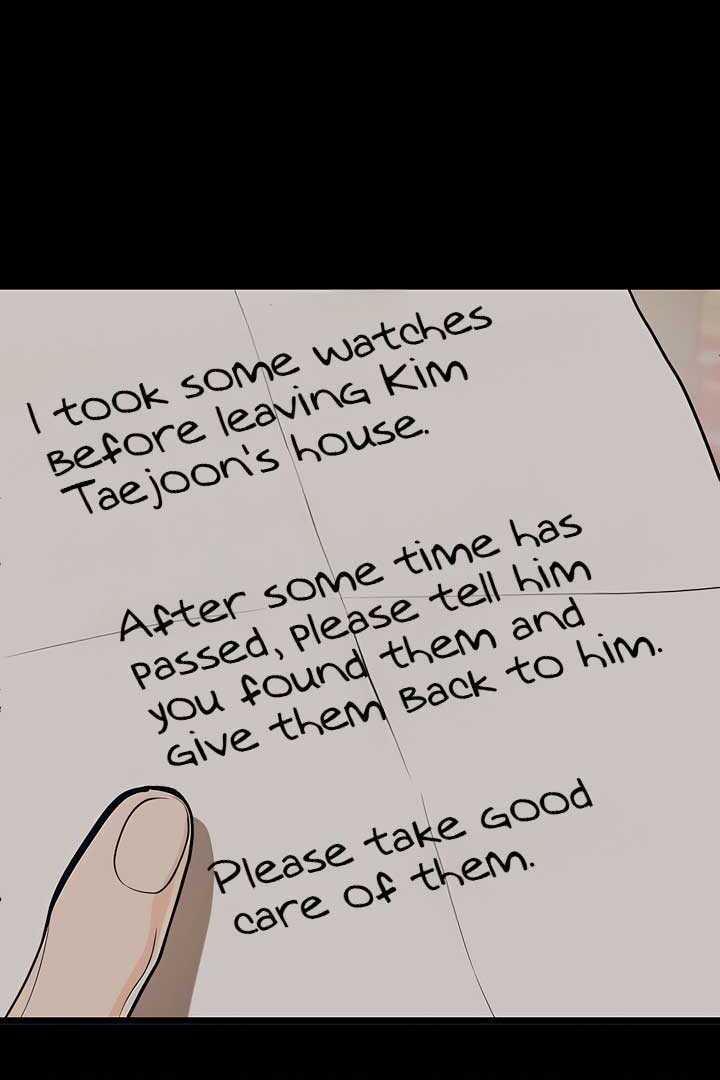 I took some watches
Before leaving Kim
Taejoon's house.
After some time has
passed, please tell him
you found them and
Give them Back to him.
Please take Good
care of them.